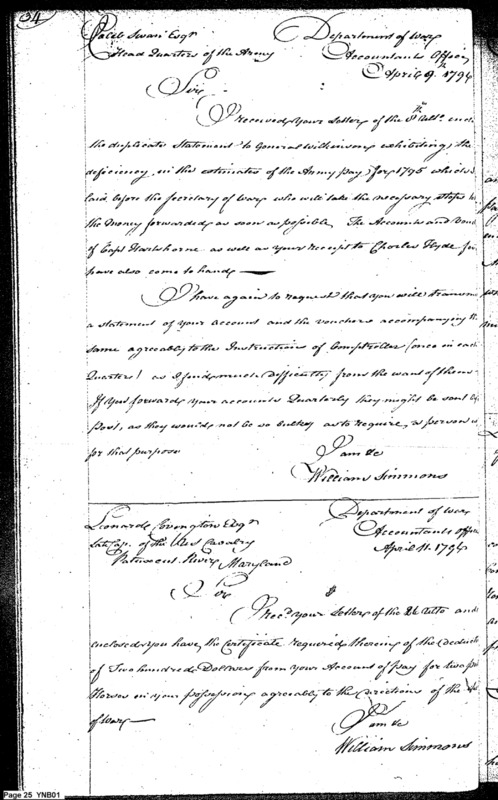 34
Caleb Swan Esqr
Head Quarters of the Army
Department of War
Accountants Office
April 9th. 1796
Sir
I received your Letter of the 8th Ulto. encl
the duplicate Statement to General Wilkinson exhibiting the
deficiency in the estimates of the Army pay for 1795 which is
laid before the Secretary of War who will take the necessary steps to
the Money forwarded as soon as possible. The Accounts and
of Capt Hartshorne as well as your receipt to Charles Hyde for
have also come to hand
I have again to request that you will transmi
a statement of your account and the vouchers accompanying th
same agreeably to the Instructions of Comptroller (once in each
Quarter) as I find much difficulty from the want of them
If you forward your accounts Quarterly they might be sent by
post, as they would not be so bulky as to require a person
for that purpose
I am &c
William Simmons
Leonard Covington Esqr
late Cap. of the Cavalry
Patuxent River Maryland
Department of War
Accountants office
April 11. 1796
Sir
I Recd. your Letter of the 26 Ulto and
enclosed you have the Certificate required therein of the deducti
of Two hundred Dollars from your Account of pay for two
Horses in your possession agreeably to the directions of the
of War
I am &c
William Simmons
Page 25 YNB01